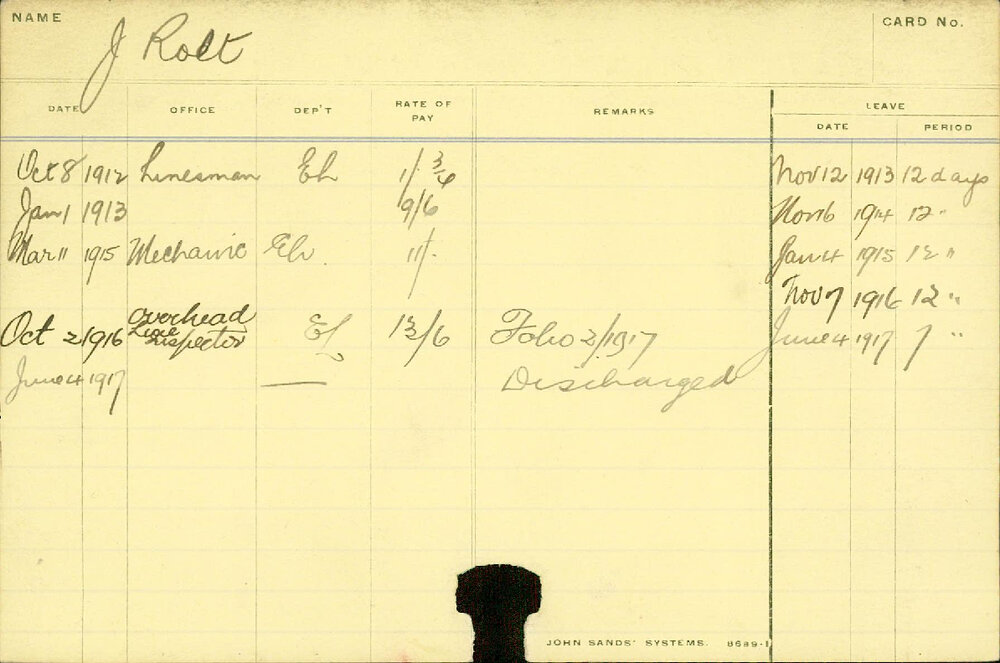 NAME J Rolt CARD No.
DATE OFFICE DEP'T RATE OF PAY REMARKS LEAVE
DATE PERIOD
Oct 8 1912 Linesman El 1/3¼ Nov 12 1913 12 days
Jan 1 1913 9/6 Nov 16 1914 12 "
Mar 11 1915 Mechanic El. 11/- Jan 4 1915 12 "
Nov 7 1916 12 "
Oct 2/1916 Overhead Line Inspector El 13/6 Folio 2/1917 June 4 1917 7 "
June 4 1917 — Discharged
JOHN SANDS' SYSTEMS. 8689-1